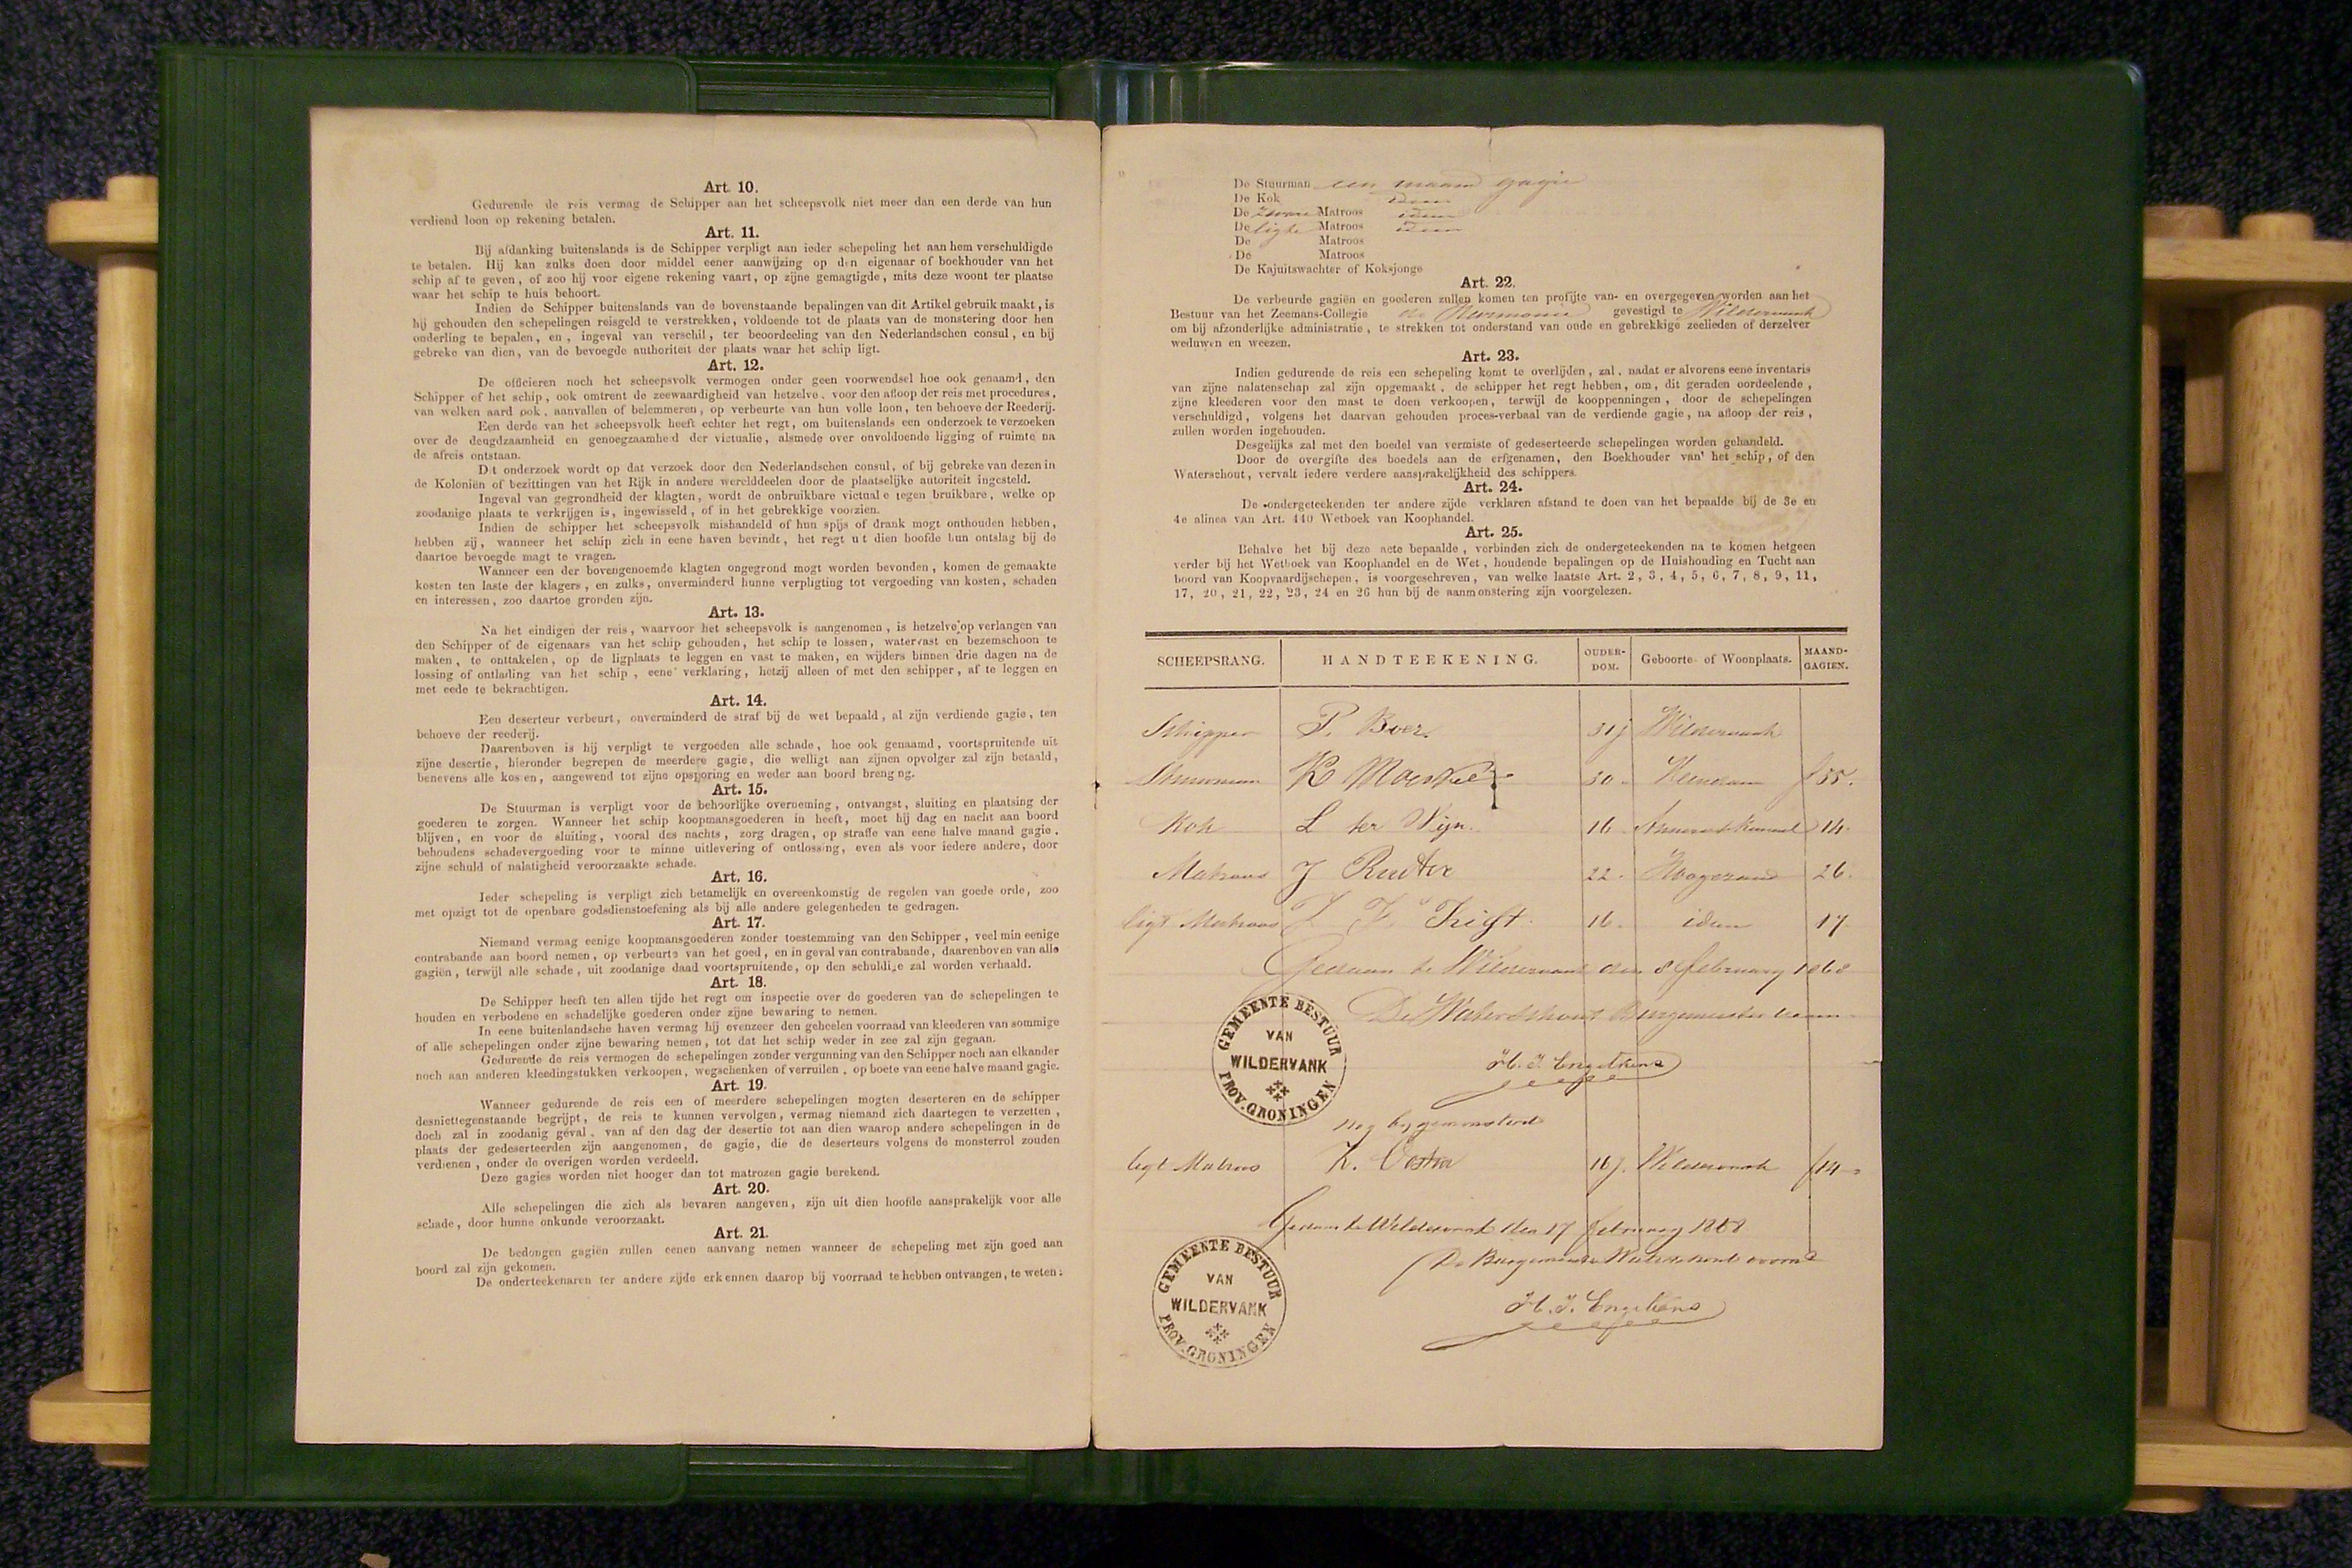 Art. 10.
Gedurende de reis vermag de Schipper aan het scheepsvolk niet meer dan een derde van hun
verdiend loon op rekening betalen.
Art. 11.
Bij afdanking buitenslands is de Schipper verpligt aan ieder schepeling het aan hem verschuldigde
te betalen. Hij kan zulks doen door middel eener aanwijzing op den eigenaar of boekhouder van het
schip af te geven, of zoo hij voor eigene rekening vaart, op zijne gemagtigde, mits deze woont ter plaatse
waar het schip te huis behoort.
Indien de Schipper buitenslands van de bovenstaande bepalingen van dit Artikel gebruik maakt, is
hij gehouden den schepelingen reisgeld te verstrekken, voldoende tot de plaats van de monstering door hen
onderling te bepalen, en, ingeval van verschil, ter beoordeeling van den Nederlandschen consul, en bij
gebreke van dien, van de bevoegde authoriteit der plaats waar het schip ligt.
Art. 12.
De officieren noch het scheepsvolk vermogen onder geen voorwendsel hoe ook genaamd, den
Schipper of het schip, ook omtrent de zeewaardigheid van hetzelve, voor den afloop der reis met procedures,
van welken aard ook, aanvallen of belemmeren, op verbeurte van hun volle loon, ten behoeve der Reederij.
Een derde van het scheepsvolk heeft echter het regt, om buitenslands een onderzoek te verzoeken
over de deugdzaamheid en genoegzaamheid der victualie, alsmede over onvoldoende ligging of ruimte na
de afreis ontstaan.
Dit onderzoek wordt op dat verzoek door den Nederlandschen consul, of bij gebreke van dezen in
de Koloniën of bezittingen van het Rijk in andere werelddeelen door de plaatselijke autoriteit ingesteld.
Ingeval van gegrondheid der klagten, wordt de onbruikbare victualie tegen bruikbare, welke op
zoodanige plaats te verkrijgen is, ingewisseld, of in het gebrekkige voorzien.
Indien de schipper het scheepsvolk mishandeld of hun spijs of drank mogt onthouden hebben,
hebben zij, wanneer het schip zich in eene haven bevindt, het regt uit dien hoofde hun ontslag bij de
daartoe bevoegde magt te vragen.
Wanneer een der bovengenoemde klagten ongegrond mogt worden bevonden, komen de gemaakte
kosten ten laste der klagers, en zulks, onverminderd hunne verpligting tot vergoeding van kosten, schaden
en interessen, zoo daartoe gronden zijn.
Art. 13.
Na het eindigen der reis, waarvoor het scheepsvolk is aangenomen, is hetzelve op verlangen van
den Schipper of de eigenaars van het schip gehouden, het schip te lossen, watervast en bezemschoon te
maken, te onttakelen, op de ligplaats te leggen en vast te maken, en wijders binnen drie dagen na de
lossing of ontlading van het schip, eene verklaring, hetzij alleen of met den schipper, af te leggen en
met eede te bekrachtigen.
Art. 14.
Een deserteur verbeurt, onverminderd de straf bij de wet bepaald, al zijn verdiende gagie, ten
behoeve der reederij.
Daarenboven is hij verpligt te vergoeden alle schade, hoe ook genaamd, voortspruitende uit
zijne desertie, hieronder begrepen de meerdere gagie, die welligt aan zijnen opvolger zal zijn betaald,
benevens alle kosten, aangewend tot zijne opsporing en weder aan boord brenging.
Art. 15.
De Stuurman is verpligt voor de behoorlijke overneming, ontvangst, sluiting en plaatsing der
goederen te zorgen. Wanneer het schip koopmansgoederen in heeft, moet hij dag en nacht aan boord
blijven, en voor de sluiting, vooral des nachts, zorg dragen, op straffe van eene halve maand gagie,
behoudens schadevergoeding voor te minne uitlevering of ontlossing, even als voor iedere andere, door
zijne schuld of nalatigheid veroorzaakte schade.
Art. 16.
Ieder schepeling is verpligt zich betamelijk en overeenkomstig de regelen van goede orde, zoo
met opzigt tot de openbare godsdienstoefening als bij alle andere gelegenheden te gedragen.
Art. 17.
Niemand vermag eenige koopmansgoederen zonder toestemming van den Schipper, veel min eenige
contrabande aan boord nemen, op verbeurte van het goed, en in geval van contrabande, daarenboven van alle
gagiën, terwijl alle schade, uit zoodanige daad voortspruitende, op den schuldige zal worden verhaald.
Art. 18.
De Schipper heeft ten allen tijde het regt om inspectie over de goederen van de schepelingen te
houden en verbodene en schadelijke goederen onder zijne bewaring te nemen.
In eene buitenlandsche haven vermag hij evenzeer den geheelen voorraad van kleederen van sommige
of alle schepelingen onder zijne bewaring nemen, tot dat het schip weder in zee zal zijn gegaan.
Gedurende de reis vermogen de schepelingen zonder vergunning van den Schipper noch aan elkander
noch aan anderen kleedingstukken verkoopen, wegschenken of verruilen, op boete van eene halve maand gagie.
Art. 19.
Wanneer gedurende de reis een of meerdere schepelingen mogten deserteren en de schipper
desniettegenstaande begrijpt, de reis te kunnen vervolgen, vermag niemand zich daartegen te verzetten,
doch zal in zoodanig géval, van af den dag der desertie tot aan dien waarop andere schepelingen in de
plaats der gedeserteerden zijn aangenomen, de gagie, die de deserteurs volgens de monsterrol zouden
verdienen, onder de overigen worden verdeeld.
Deze gagies worden niet hooger dan tot matrozen gagie berekend.
Art. 20.
Alle schepelingen die zich als bevaren aangeven, zijn uit dien hoofde aansprakelijk voor alle
schade, door hunne onkunde veroorzaakt.
Art. 21.
De bedongen gagiën zullen eenen aanvang nemen wanneer de schepeling met zijn goed aan
boord zal zijn gekomen.
De onderteekenaren ter andere zijde erkennen daarop bij voorraad te hebben ontvangen, te weten:
De Stuurman een maand gagie
De Kok idem
De zware Matroos idem
De ligte Matroos idem
De Matroos
De Matroos
De Kajuitswachter of Koksjonge
Art. 22.
De verbeurde gagiën en goederen zullen komen ten profijte van- en overgegeven worden aan het
Bestuur van het Zeemans-Collegie de Harmonie gevestigd te Wildervank
om bij afzonderlijke administratie, te strekken tot onderstand van oude en gebrekkige zeelieden of derzelver
weduwen en weezen.
Art. 23.
Indien gedurende de reis een schepeling komt te overlijden, zal, nadat er alvorens eene inventaris
van zijne nalatenschap zal zijn opgemaakt, de schipper het regt hebben, om, dit geraden oordeelende,
zijne kleederen voor den mast te doen verkoopen, terwijl de kooppenningen, door de schepelingen
verschuldigd, volgens het daarvan gehouden proces-verbaal van de verdiende gagie, na afloop der reis,
zullen worden ingehouden.
Desgelijks zal met den boedel van vermiste of gedeserteerde schepelingen worden gehandeld.
Door de overgifte des boedels aan de erfgenamen, den Boekhouder van het schip, of den
Waterschout, vervalt iedere verdere aansprakelijkheid des schippers.
Art. 24.
De ondergeteekenden ter andere zijde verklaren afstand te doen van het bepaalde bij de 3e en
4e alinea van Art. 440 Wetboek van Koophandel.
Art. 25.
Behalve het bij deze acte bepaalde, verbinden zich de ondergeteekenden na te komen hetgeen
verder bij het Wetboek van Koophandel en de Wet, houdende bepalingen op de Huishouding en Tucht aan
boord van Koopvaardijschepen, is voorgeschreven, van welke laatste Art. 2, 3, 4, 5, 6, 7, 8, 9, 11,
17, 20, 21, 22, 23, 24 en 26 hun bij de aanmonstering zijn voorgelezen.
SCHEEPSRANG. HANDTEEKENING. OUDERDOM. Geboorte- of Woonplaats. MAANDGAGIEN.
Schipper P. Boer 31 j Wildervank
Stuurman K 30 Veendam f 55.
Kok L ter Wijn 16 14.
Matroos J Ruiter 22. Hoogezand 26.
ligt Matroos 16. idem 17
Gedaan te Wildervank den 8 february 1868
De Waterschout Burgemeester
H. J. Engelkens
GEMEENTE BESTUUR VAN WILDERVANK PROV. GRONINGEN
nog bijgemonsterd
ligt Matroos K. Oostra 16 j. Wildervank f 14
Gedaan te Wildervank den 17 february 1868
De Burgemeester Waterschout voorn
H. J. Engelkens
GEMEENTE BESTUUR VAN WILDERVANK PROV. GRONINGEN